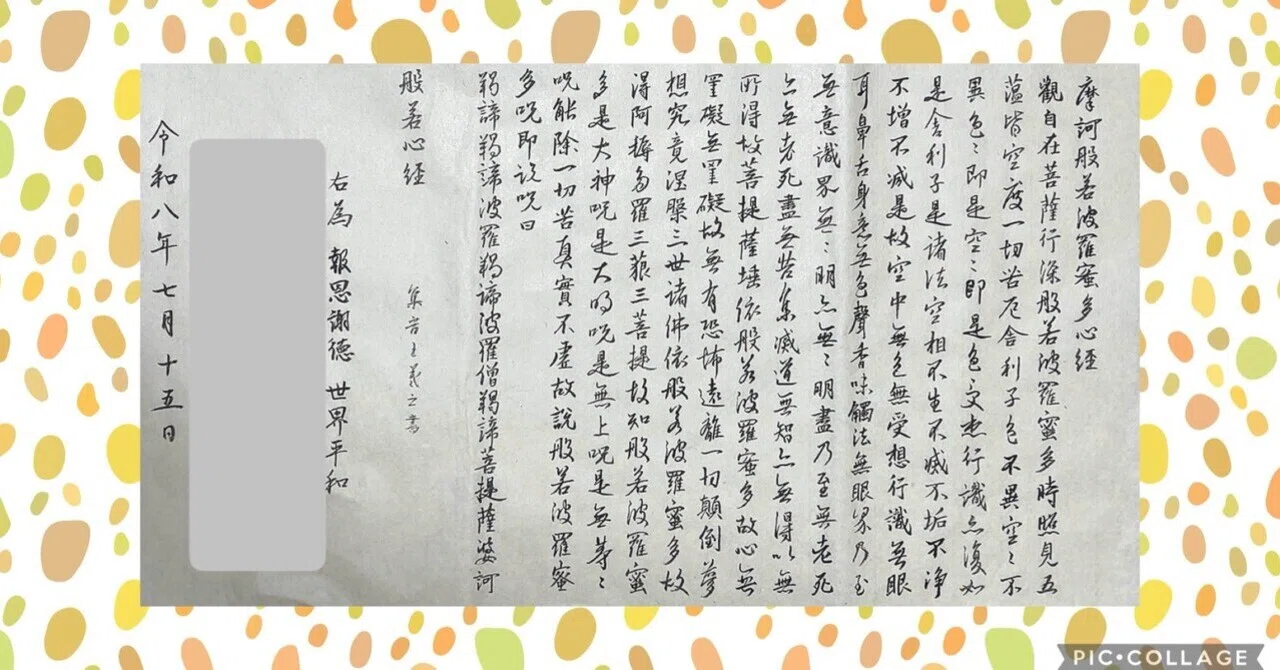 摩訶般若波羅蜜多心経
觀自在菩薩行深般若波羅蜜多時照見五
蘊皆空度一切苦厄舎利子色不異空〻不
異色〻即是空〻即是色受想行識亦復如
是舎利子是諸法空相不生不滅不垢不浄
不增不減是故空中無色無受想行識無眼
耳鼻舌身意無色聲香味觸法無眼界乃至
無意識界無〻明亦無〻明盡乃至無老死
亦無老死盡無苦集滅道無智亦無得以無
所得故菩提薩埵依般若波羅蜜多故心無
罣礙無罣礙故無有恐怖遠離一切顛倒夢
想究竟涅槃三世諸佛依般若波羅蜜多故
得阿耨多羅三藐三菩提故知般若波羅蜜
多是大神呪是大明呪是無上呪是無等〻
呪能除一切苦真實不虚故說般若波羅蜜
多呪即説呪曰
羯諦羯諦波羅羯諦波羅僧羯諦菩提薩婆訶
般若心経
集字王羲之書
右為 報恩謝徳 世界平和
令和八年七月十五日
PIC•COLLAGE